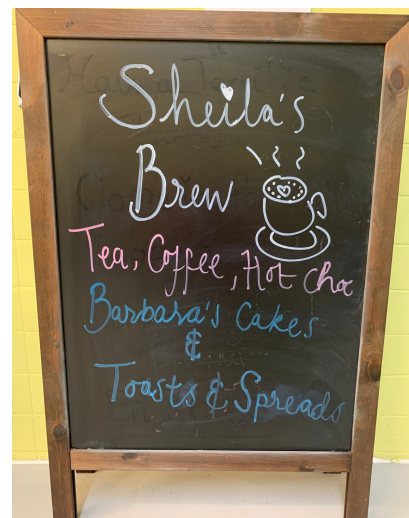 Sheila's
Brew
Tea, Coffee, Hot Choc
Barbara's Cakes
&
Toasts & Spreads